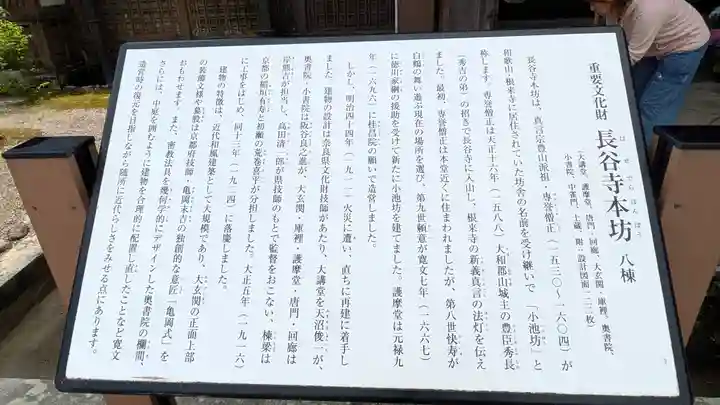 重要文化財 長谷寺本坊 八棟
はせでらほんぼう
（大講堂、護摩堂、唐門・回廊、大玄関・庫裡、奥書院、
小書院、中雀門、土蔵、附・設計図面一二二枚）
長谷寺本坊は、真言宗豊山派派祖 専誉僧正（一五三〇～一六〇四）が
和歌山・根来寺に居住されていた坊舎の名前を受け継いで 「小池坊」と
称します。専誉僧正は天正十六年（一五八八）大和郡山城主の豊臣秀長
（秀吉の弟）の招きで長谷寺に入山し、根来寺の新義真言の法灯を伝え
ました。最初、専誉僧正は本堂近くに住まわれましたが、第八世快寿が
白鶴の舞い遊ぶ現在の場所を選び、第九世頼意が寛文七年（一六六七）
に徳川家綱の援助を受けて新たに小池坊を建てました。護摩堂は元禄九
年（一六九六）に桂昌院の願いで造営しました。
しかし、明治四十四年（一九一一）火災に遭い、直ちに再建に着手し
ました。建物の設計は奈良県文化財技師があたり、大講堂を天沼俊一が、
奥書院・小書院は阪谷良之進が、大玄関・庫裡・護摩堂・唐門・回廊は
岸熊吉が担当し、高田清一郎が県技師のもとで監督をおこない、棟梁は
京都の稲垣有寿と初瀬の荒巻喜平が分担しました。大正五年（一九一六）
に工事をはじめ、同十三年（一九二四）に落慶しました。
建物の特徴は、近代和風建築として大規模であり、大玄関の正面上部
の装飾文様や蟇股は京都府技師・亀岡末吉の独創的な意匠「亀岡式」を
おもわせます。また、密教法具を幾何学的にデザインした奥書院の欄間、
さらには、中庭を囲むように建物を合理的に配置し直したことなど寛文
造営時の復元を目指しながら随所に近代らしさをみせる点にあります。